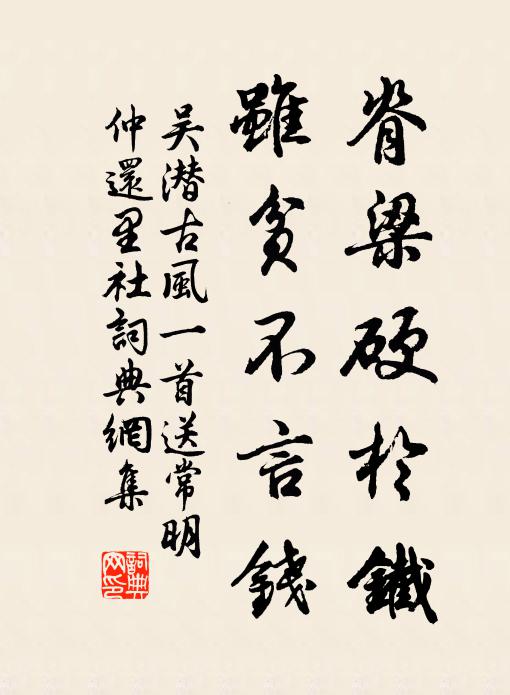 脊梁硬於鐵
雖貧不言錢
吴潜古風一首送常明
仲還里社詞典網集
詞典网印